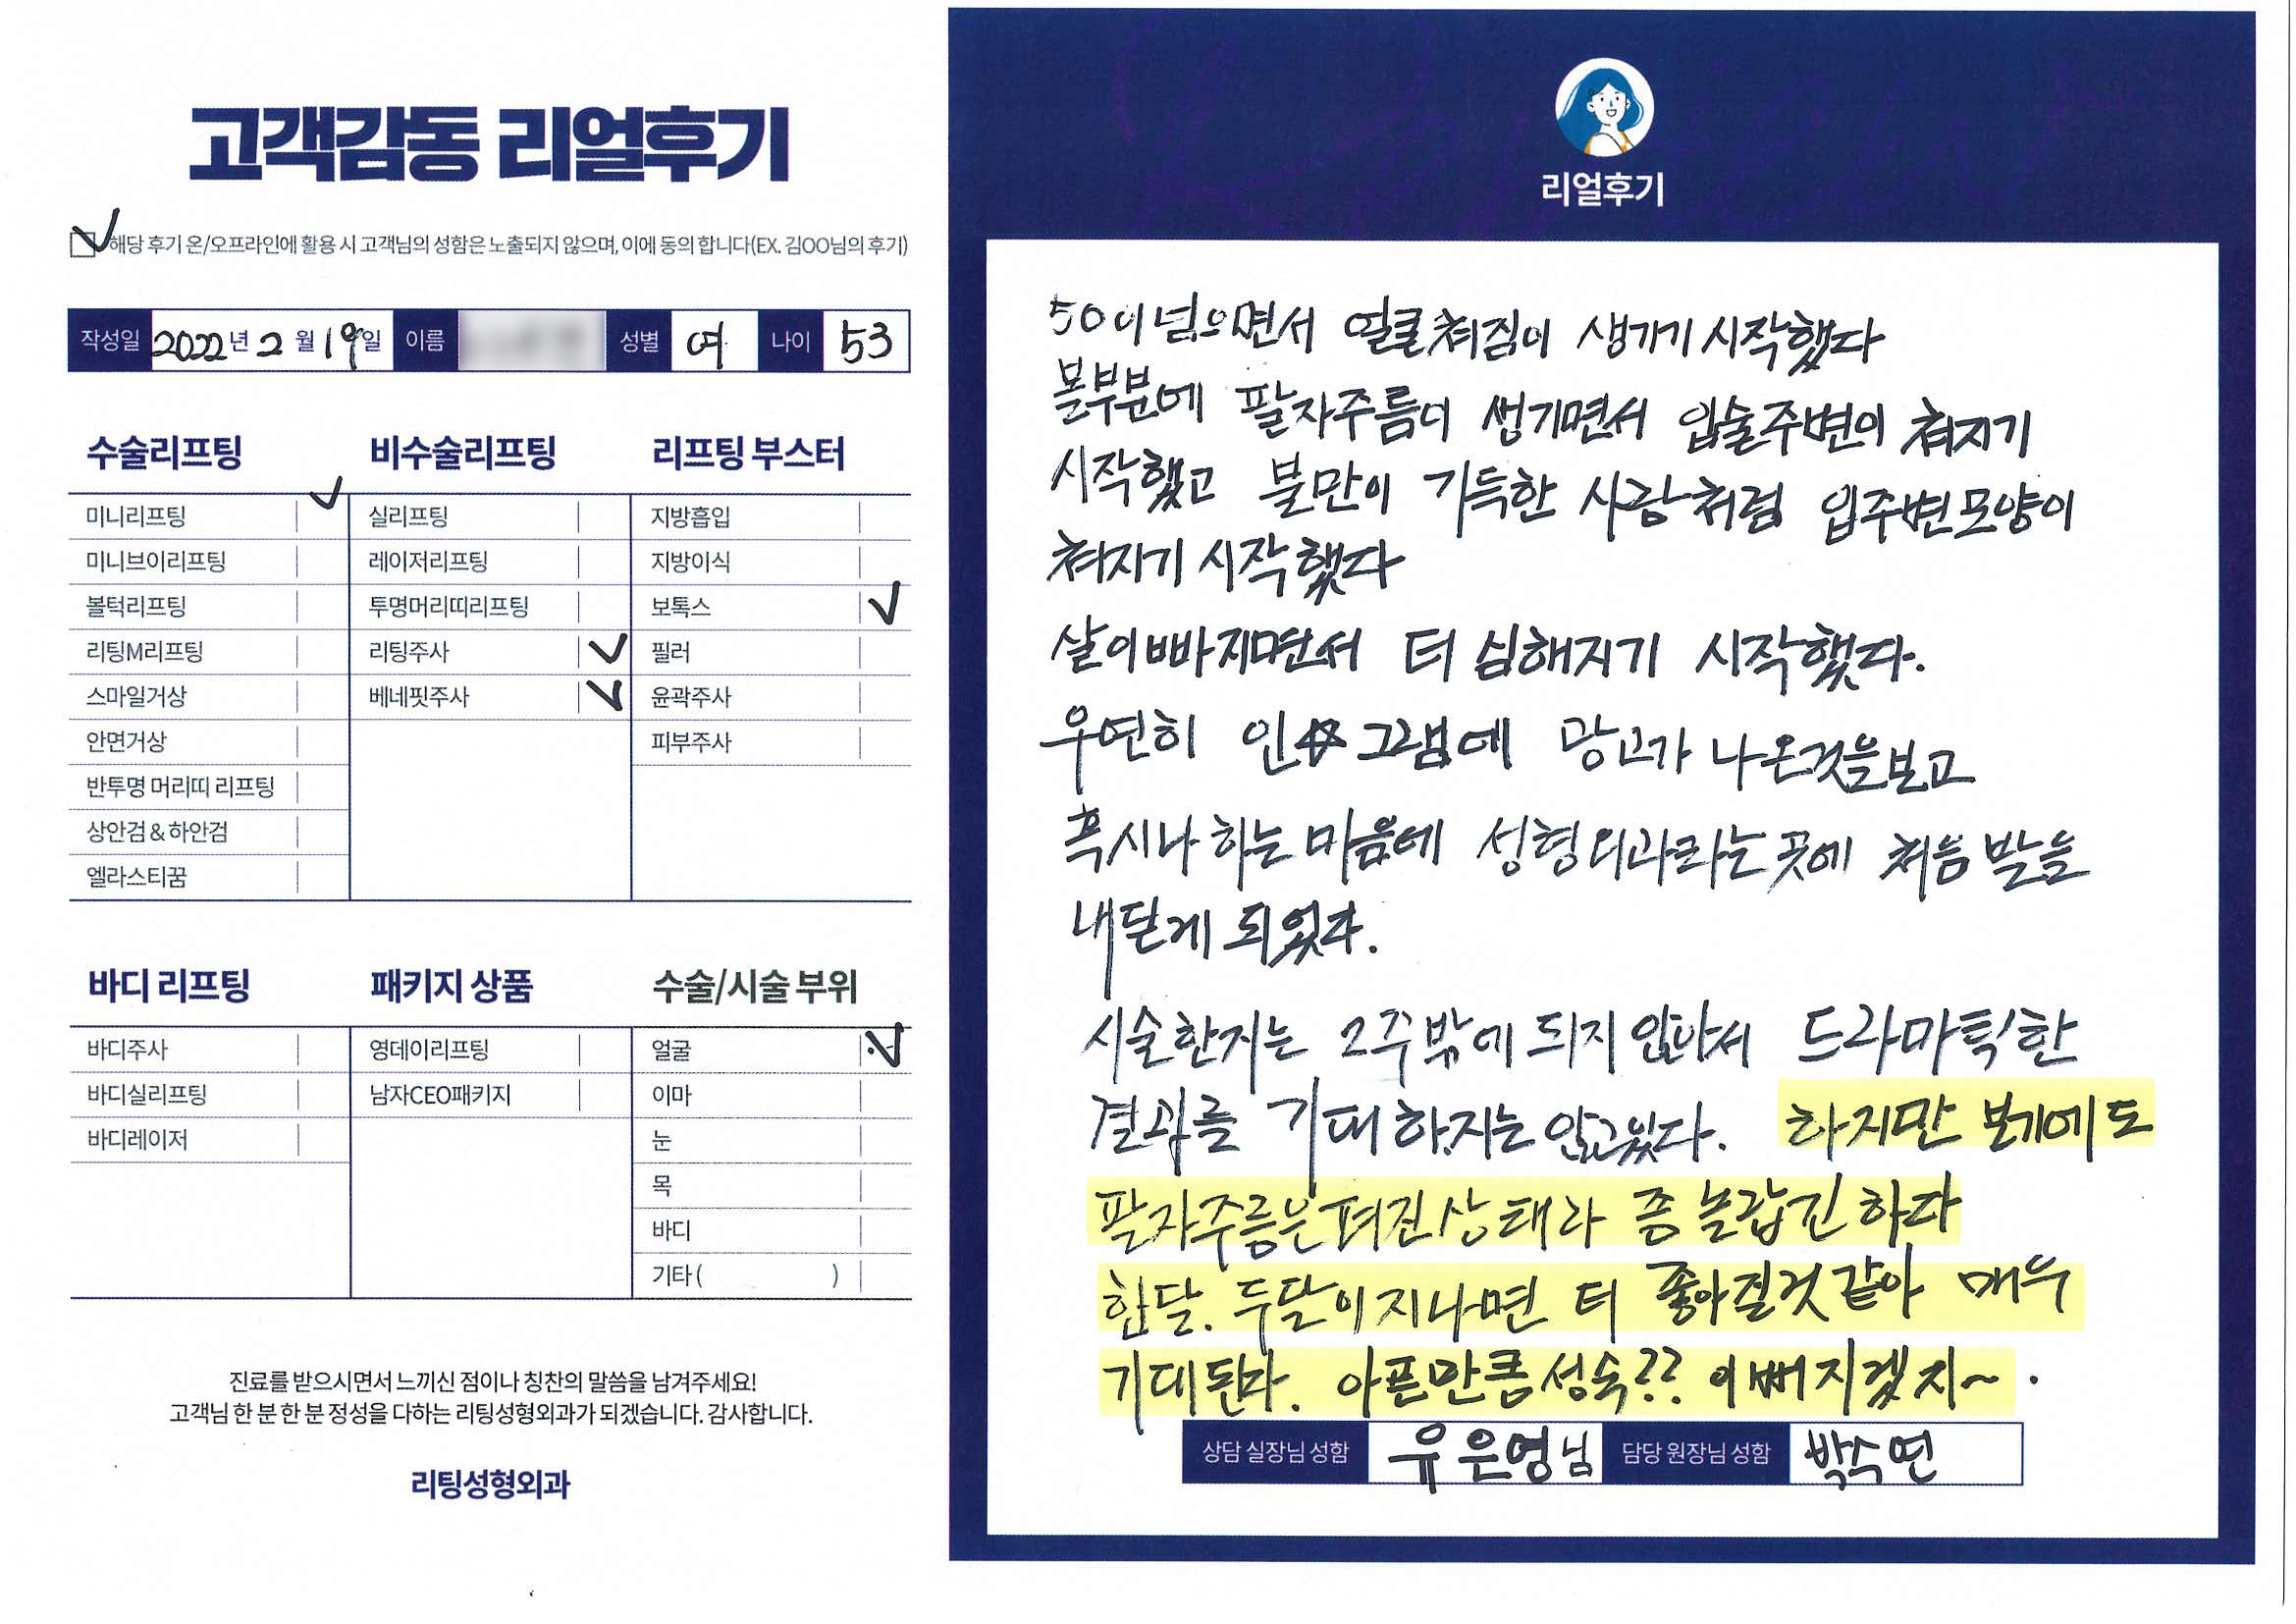 고객감동 리얼후기
해당 후기 온/오프라인에 활용 시 고객님의 성함은 노출되지 않으며, 이에 동의 합니다(EX. 김OO님의 후기)
작성일 2022년 2월 19일 이름 성별 여 나이 53
수술리프팅
미니리프팅
미니브이리프팅
볼턱리프팅
리팅M리프팅
스마일거상
안면거상
반투명 머리띠 리프팅
상안검 & 하안검
엘라스티꿈
비수술리프팅
실리프팅
레이저리프팅
투명머리띠리프팅
리팅주사
베네핏주사
리프팅 부스터
지방흡입
지방이식
보톡스
필러
윤곽주사
피부주사
바디 리프팅
바디주사
바디실리프팅
바디레이저
패키지 상품
영데이리프팅
남자CEO패키지
수술/시술 부위
얼굴
이마
눈
목
바디
기타 ( )
진료를 받으시면서 느끼신 점이나 칭찬의 말씀을 남겨주세요!
고객님 한 분 한 분 정성을 다하는 리팅성형외과가 되겠습니다. 감사합니다.
리팅성형외과
리얼후기
50이 넘으면서 얼클쳐짐이 생기기 시작했다
볼부분에 팔자주름이 생기면서 입술주변이 쳐지기
시작했고 불만이 가득한 사람처럼 입주변모양이
쳐지기 시작했다
살이빠지면서 더 심해지기 시작했다.
우연히 인☆그램에 광고가 나온것을보고
혹시나 하는 마음에 성형외과라는곳에 처음 발을
내딛게 되었다.
시술한지는 2주밖에 되지 않아서 드라마틱한
결과를 기대하지는 않고있다. 하지만 보기에도
팔자주름은펴진상태라 좀 놀랍긴하다
한달. 두달이지나면 더 좋아질것 같아 매우
기대된다. 아픈만큼성숙?? 이뻐지겠지~.
상담 실장님 성함 유은영님 담당 원장님 성함 박수연